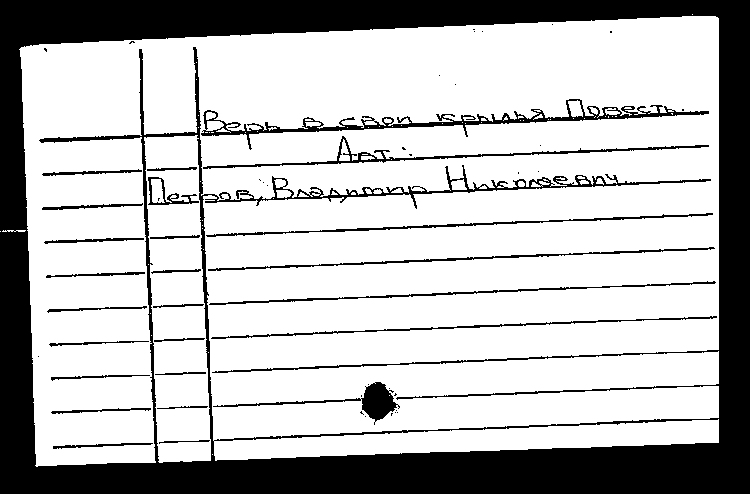 Верь в свои крылья Повесть.
Авт.:
Петров, Владимир Николаевич.